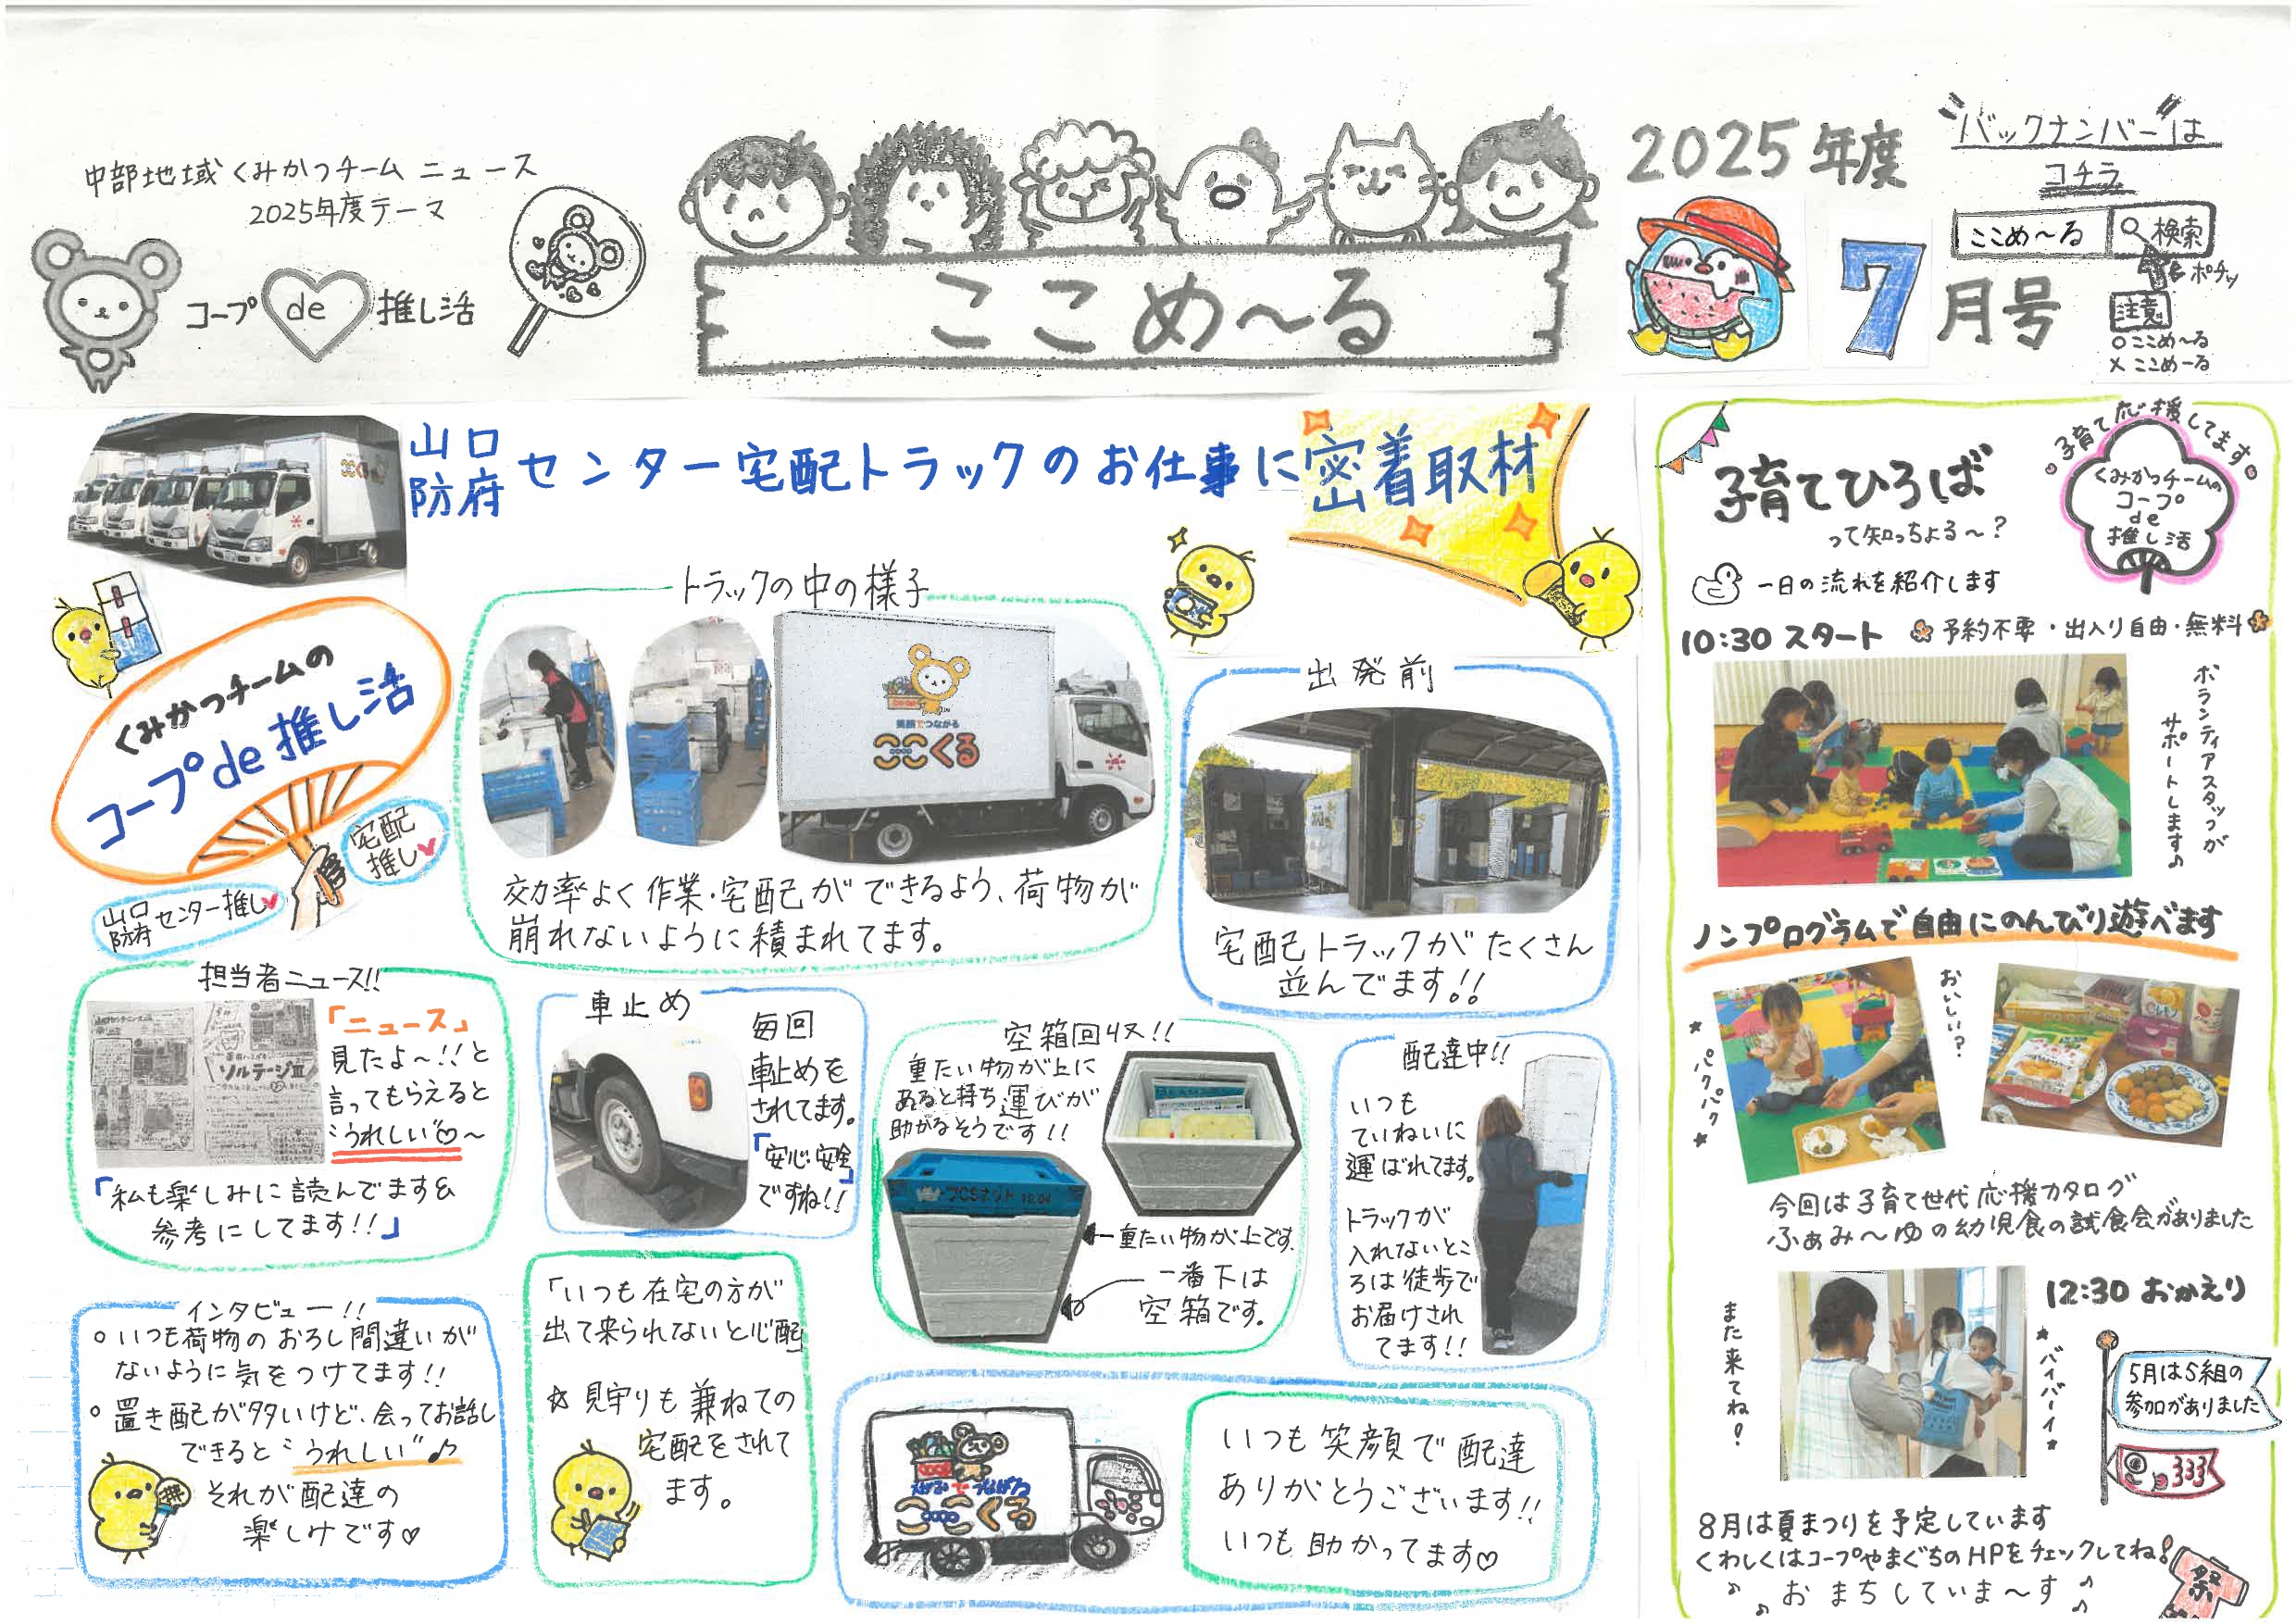 中部地域くみかつチーム ニュース
2025年度テーマ
コープ de 推し活
ここめ～る
2025年度
7月号
"バックナンバー"は
コチラ
ここめ～る 検索
ポチッ
注意
○ ここめ～る
× ここめーる
山口
防府
センター宅配トラックのお仕事に密着取材
くみかつチームの
コープde推し活
宅配
推し
山口
防府
センター推し
トラックの中の様子
笑顔でつながる
ここくる
効率よく作業・宅配ができるよう、荷物が
崩れないように積まれてます。
出発前
宅配トラックがたくさん
並んでます!!
担当者ニュース!!
ソルテージⅢ
「ニュース」
見たよ～!!と
言ってもらえると
"うれしい"♡～
「私も楽しみに読んでます&
参考にしてます!!」
車止め
毎回
車止めを
されてます。
「安心・安全」
ですね!!
空箱回収!!
重たい物が上に
あると持ち運びが
助かるそうです!!
重たい物が上です。
一番下は
空箱です。
配達中!!
いつも
ていねいに
運ばれてます。
トラックが
入れないとこ
ろは徒歩で
お届けされ
てます!!
インタビュー!!
○いつも荷物のおろし間違いが
ないように気をつけてます!!
○置き配が多いけど、会ってお話し
できると"うれしい"♪
それが配達の
楽しみです♡
「いつも在宅の方が
出て来られないと心配
☆見守りも兼ねての
宅配をされて
ます。
えがおでつながる
ここくる
いつも笑顔で配達
ありがとうございます!!
いつも助かってます♡
子育て応援してます
くみかつチームの
コープ
de
推し活
子育てひろば
って知っちょる～?
一日の流れを紹介します
10:30 スタート
予約不要・出入り自由・無料
ボランティアスタッフが
サポートします♪
ノンプログラムで自由にのんびり遊べます
★パクパク★
おいしい?
今回は子育て世代応援カタログ
ふぁみ～ゆの幼児食の試食会がありました
12:30 おかえり
また来てね!
★バイバーイ★
5月は5組の
参加がありました
8月は夏まつりを予定しています
くわしくはコープやまぐちのHPをチェックしてね!
♪おまちしていま～す♪
祭